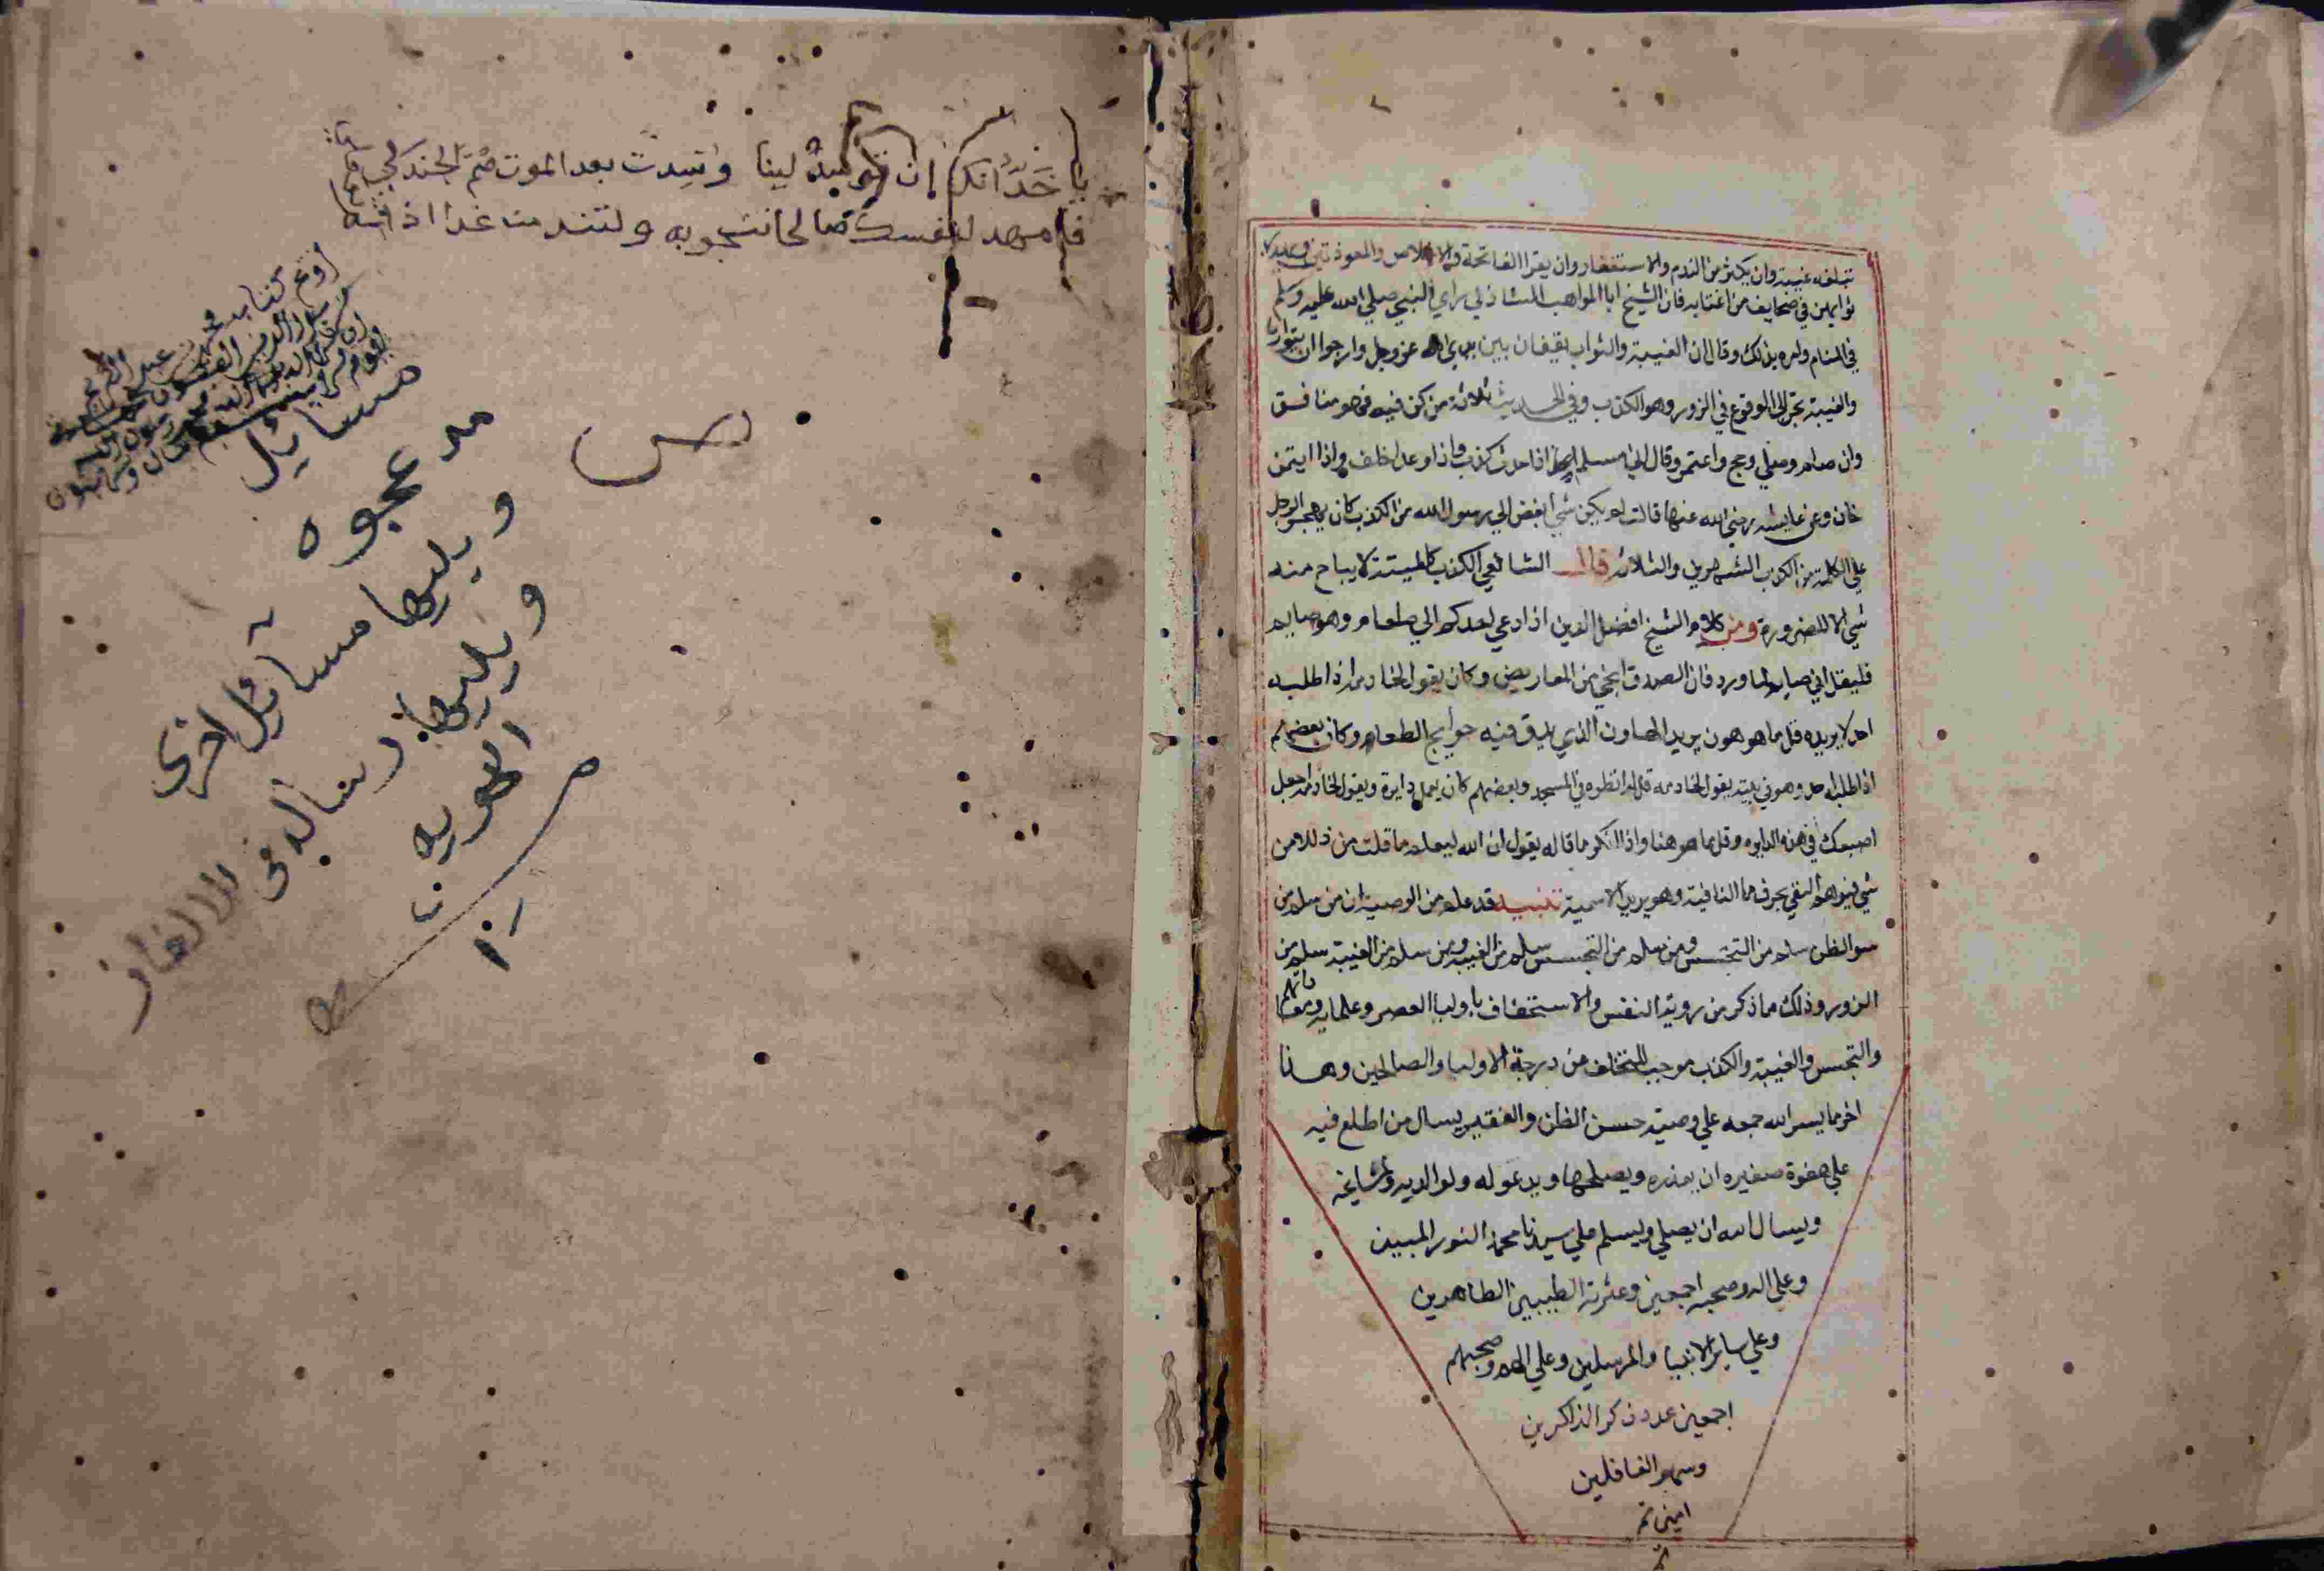 تبلغه غيبة وان يكثر من الندم والاستغفار وان يقرا الفاتحة والاخلاص والمعوذتين ويهدي
ثوابهن في صحايف من اغتابه فان الشيخ ابا المواهب الشاذلي راي النبي صلي الله عليه وسلم
في المنام وامره بذلك وقال ان الغيبة والثواب يقفان بين يدي الله عز وجل وارجوا ان يتوازنا
والغيبة تجر الي الوقوع في الزور وهو الكذب وفي الحديث ثلاثة من كن فيه فهو منافق
وان صام وصلي وحج واعتمر وقال اني مسلم اذا حدث كذب واذا وعد اخلف واذا ايتمن
خان وعن عايشه رضي الله عنها قالت لم يكن شي ابغض الي رسول الله من الكذب كان يهجر الرجل
علي الكلمة من الكذب الشهرين والثلاثه قال الشافعي الكذب كالميتة لا يباح منه
شي الا للضرورة ومن كلام الشيخ افضل الدين اذا دعي احدكم الي طعام وهو صايم
فليقل اني صايم لما ورد فان الصدق انجي من المعاريض وكان يقول لخادمه اذا طلبه
احد لا يريده قل ما هو هون يريد الهاون الذي يدق فيه حوايج الطعام وكان بعضهم
اذا طلبه احد وهو في بيته يقول لخادمه قل له انظره في المسجد وبعضهم كان يعمل دايرة ويقول لخادمه اجعل
اصبعك في هذه الدايره وقل ما هو هنا واذا انكر ما قاله يقول ان الله ليعلم ما قلت من ذلك من
شي فيتوهم النفي بحرف ما النافية وهو يريد الاسمية تنبيه قد علم من الوصية ان من سلم من
سو الظن سلم من التجسس ومن سلم من التجسس سلم من الغيبة ومن سلم من الغيبة سلم من
الزور وذلك ما ذكر من روية النفس والاستخفاف باوليا العصر وعلمايه
والتجسس والغيبة والكذب موجب للتخلف من درجة الاوليا والصالحين وهذا
اخر ما يسر الله جمعه علي وصية حسن الظن والفقير يسال من اطلع فيه
علي هفوة صغيره ان يعذره ويصلحها ويدعو له ولوالديه ولمشايخه
ويسال الله ان يصلي ويسلم علي سيدنا محمد النور المبين
وعلي اله وصحبه اجمعين وعترته الطيبين الطاهرين
وعلي ساير الانبيا والمرسلين وعلي الهم وصحبهم
اجمعين عدد ذكر الذاكرين
وسهو الغافلين
امين تم
يا خد انك ان لينا وتسدت بعد الموت صم الجندل
فامهد لنفسك صالحا تنجو به ولتندمن غدا اذا
مسايل
مد عجوه
ويليها مسائل اخرى
ويليها رسالة في الالغاز